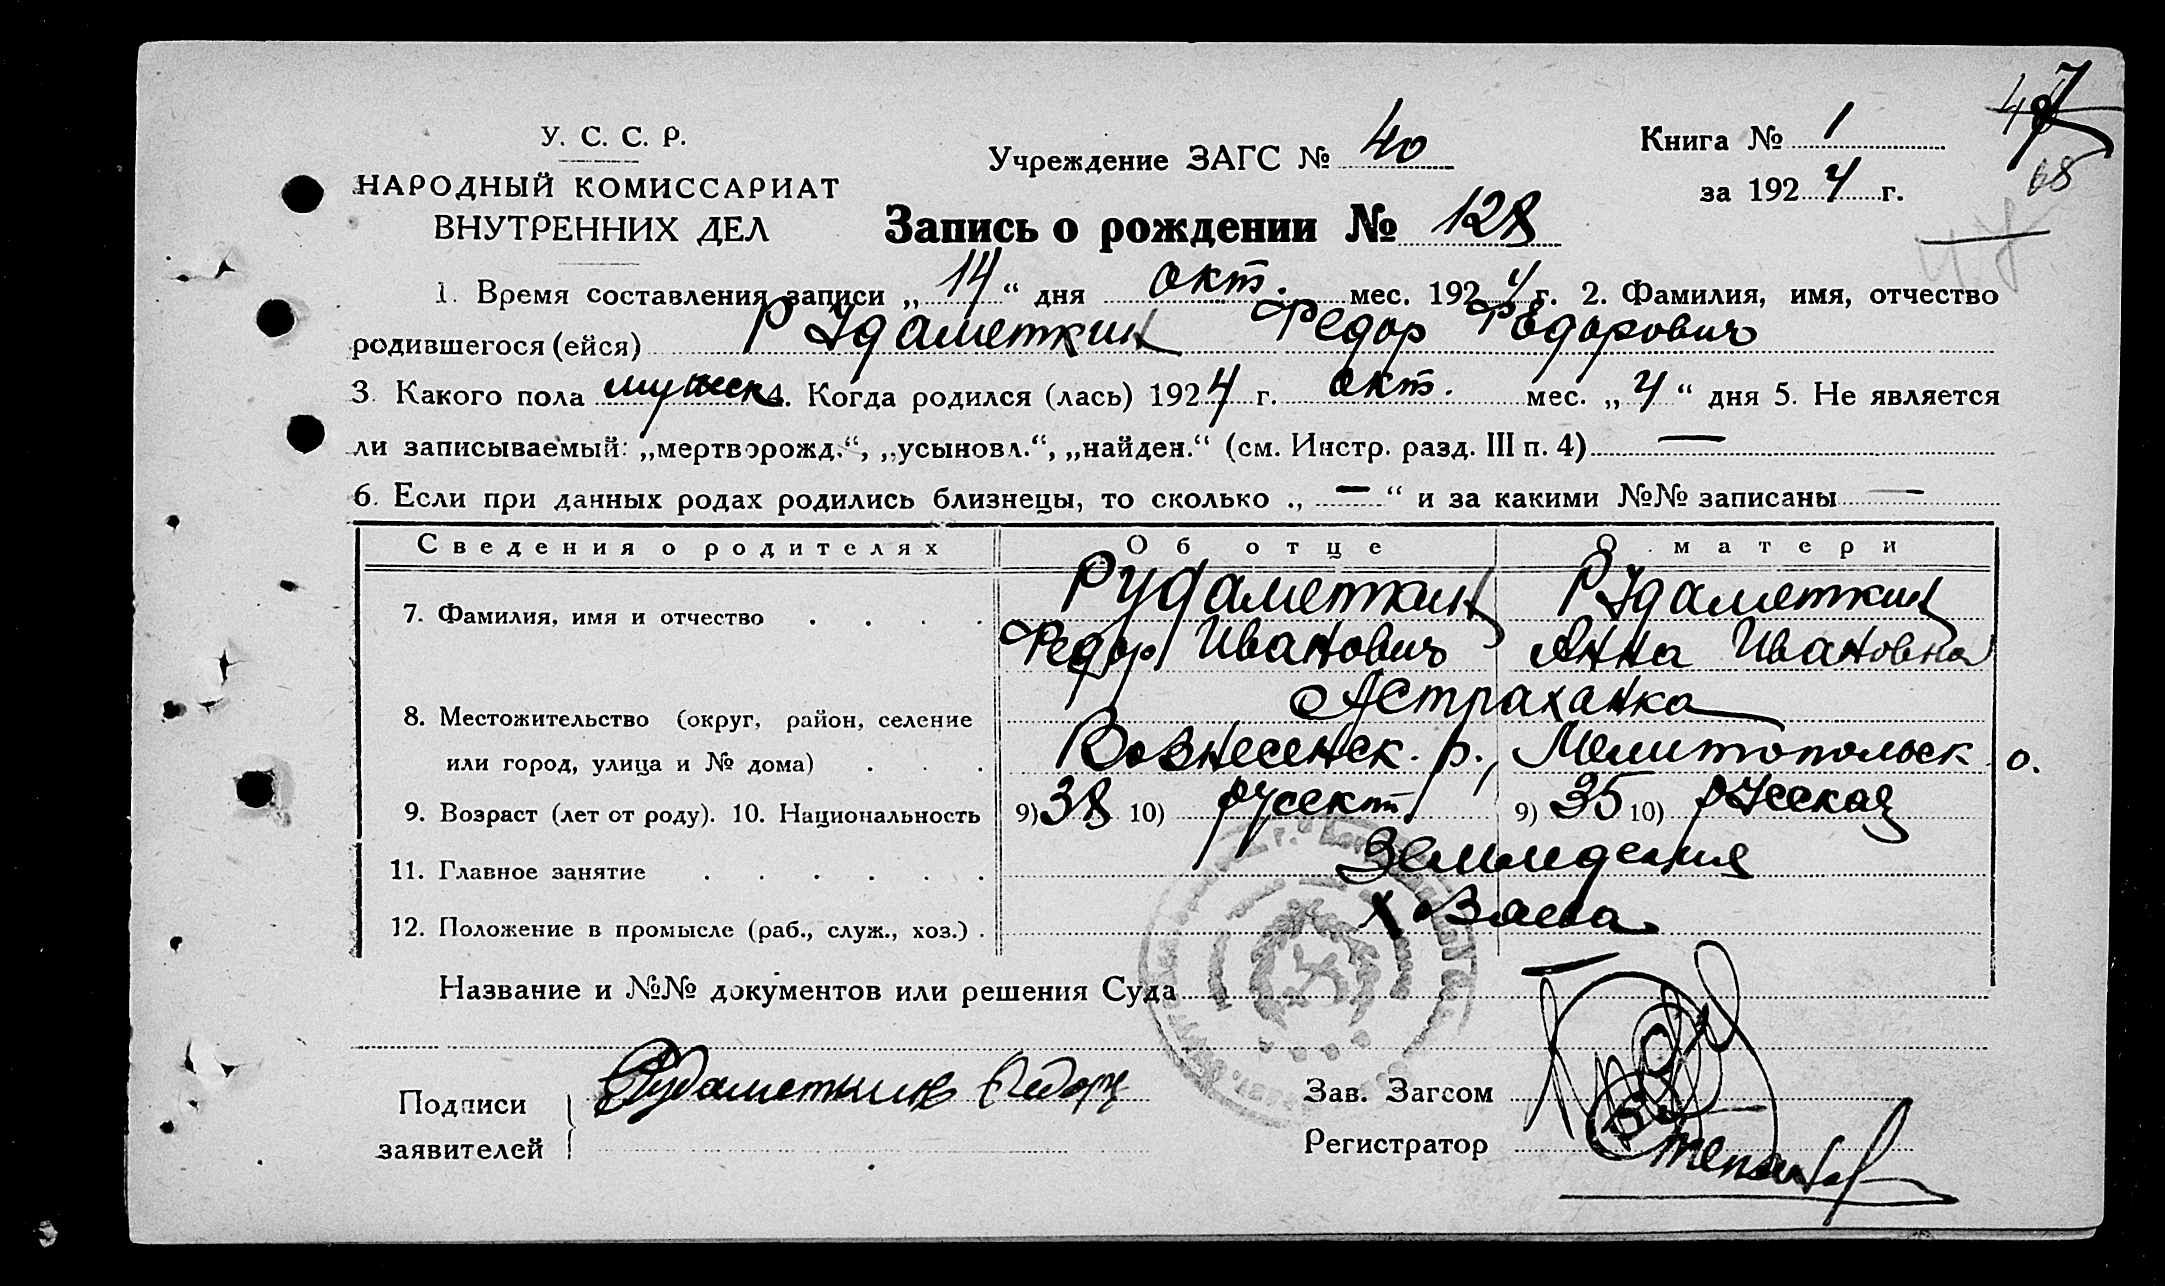 У. С. С. Р.
НАРОДНЫЙ КОМИССАРИАТ
ВНУТРЕННИХ ДЕЛ
Учреждение ЗАГС № 40
Книга № 1
за 1924 г.
68
Запись о рождении № 128
1. Время составления записи „14“ дня окт. мес. 1924 г. 2. Фамилия, имя, отчество
родившегося (ейся) Рудаметкин Федор Федорович
3. Какого пола мужск 4. Когда родился (лась) 1924 г. окт. мес. „4“ дня 5. Не является
ли записываемый: „мертворожд.“, „усыновл.“, „найден.“ (см. Инстр. разд. III п. 4) —
6. Если при данных родах родились близнецы, то сколько „ — “ и за какими №№ записаны —
Сведения о родителях Об отце О матери
7. Фамилия, имя и отчество . . . . Рудаметкин Рудаметкин
Федор Иванович Анна Ивановна
8. Местожительство (округ, район, селение Астраханка
или город, улица и № дома) . . . Вознесенск. р., Мелитопольск о.
9. Возраст (лет от роду). 10. Национальность 9) 38 10) русск 9) 35 10) русская
11. Главное занятие . . . . . . Земледелия
12. Положение в промысле (раб., служ., хоз.) . хозяева
Название и №№ документов или решения Суда
Подписи заявителей Рудаметкин Федор
Зав. Загсом
Регистратор